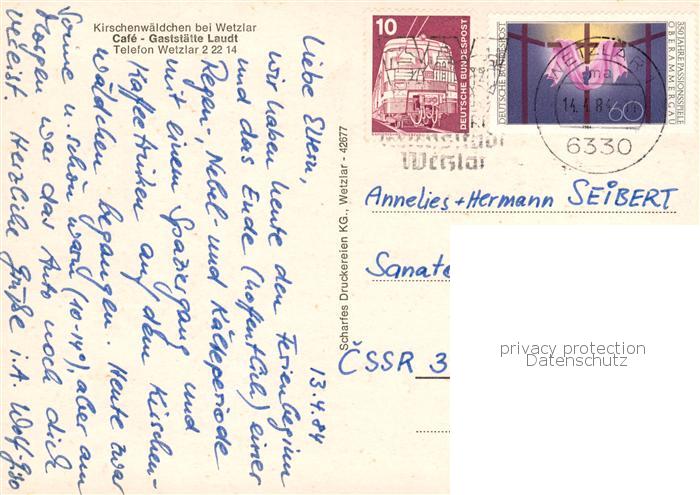 Kirschenwäldchen bei Wetzlar
Café - Gaststätte Laudt
Telefon Wetzlar 2 22 14
13.4.84
Liebe Eltern,
wir haben heute den Ferienbeginn
und das Ende (hoffentlich) einer
Regen-, Nebel- und Kälteperiode
mit einem Spaziergang und
Kaffeetrinken auf dem Kirschen-
wäldchen begangen. Heute war
Sonne u. schön warm (10-14°), aber am
Morgen war das Auto noch dick
vereist. Herzliche Grüße i.A. Wolf-
Scharfes Druckereien KG., Wetzlar - 42677
10
DEUTSCHE BUNDESPOST
DEUTSCHE BUNDESPOST
60
350 JAHRE PASSIONSSPIELE
OBERAMMERGAU
WETZLAR
ma
14.4.84
6330
Wetzlar
Annelies + Hermann SEIBERT
Sanat
ČSSR 3
privacy protection
Datenschutz